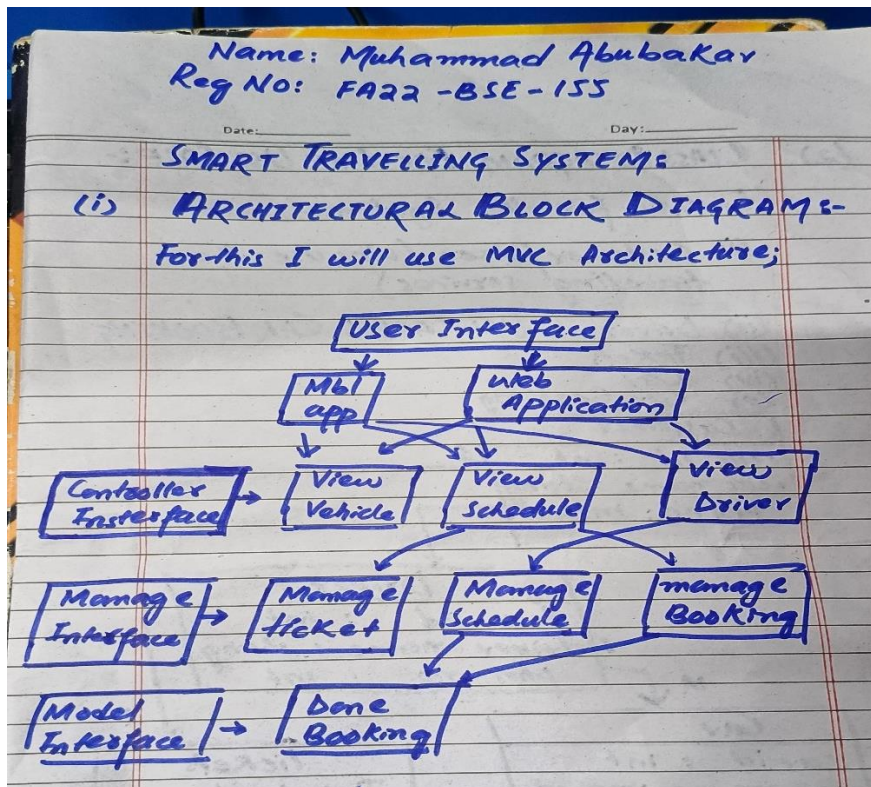 Name: Muhammad Abubakar
Reg No: FA22-BSE-155
Date: Day:
SMART TRAVELLING SYSTEM:
(i) ARCHITECTURAL BLOCK DIAGRAM:-
For this I will use MVC Architecture;
User Interface
Mbl
app
web
Application
Controller
Insterface
View
Vehicle
View
Schedule
View
Driver
Manage
Interface
Manage
ticket
Manage
Schedule
manage
Booking
Model
Interface
Done
Booking